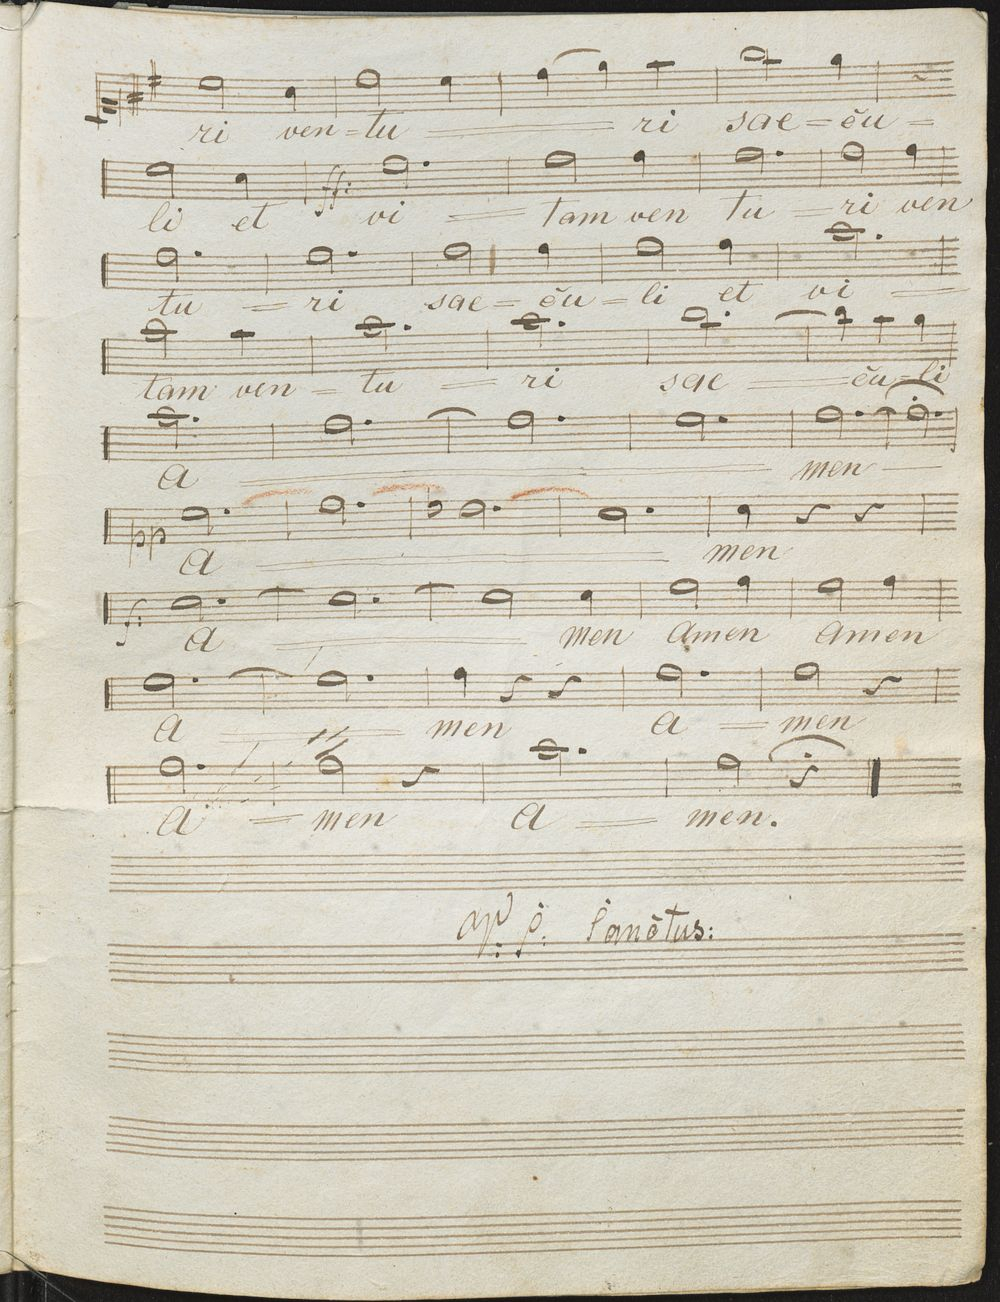 ri ven = tu = ri sae = cu =
ff:
li et vi = tam ven tu = ri ven
tu = ri sae = cu = li et vi =
tam ven = tu = ri sae = cu = li
A = men
A = men
f:
A = men Amen Amen
A = men A = men
A = men A = men.
Sanctus: